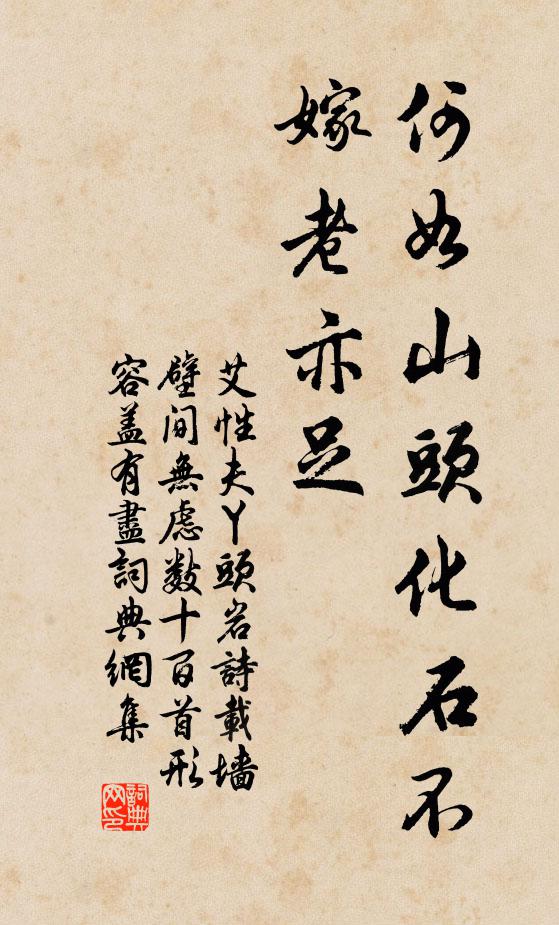 何如山頭化石不
嫁老亦足
艾性夫丫頭岩詩載墻
壁间無慮数十百首形
容盖有盡詞典網集
詞典网印